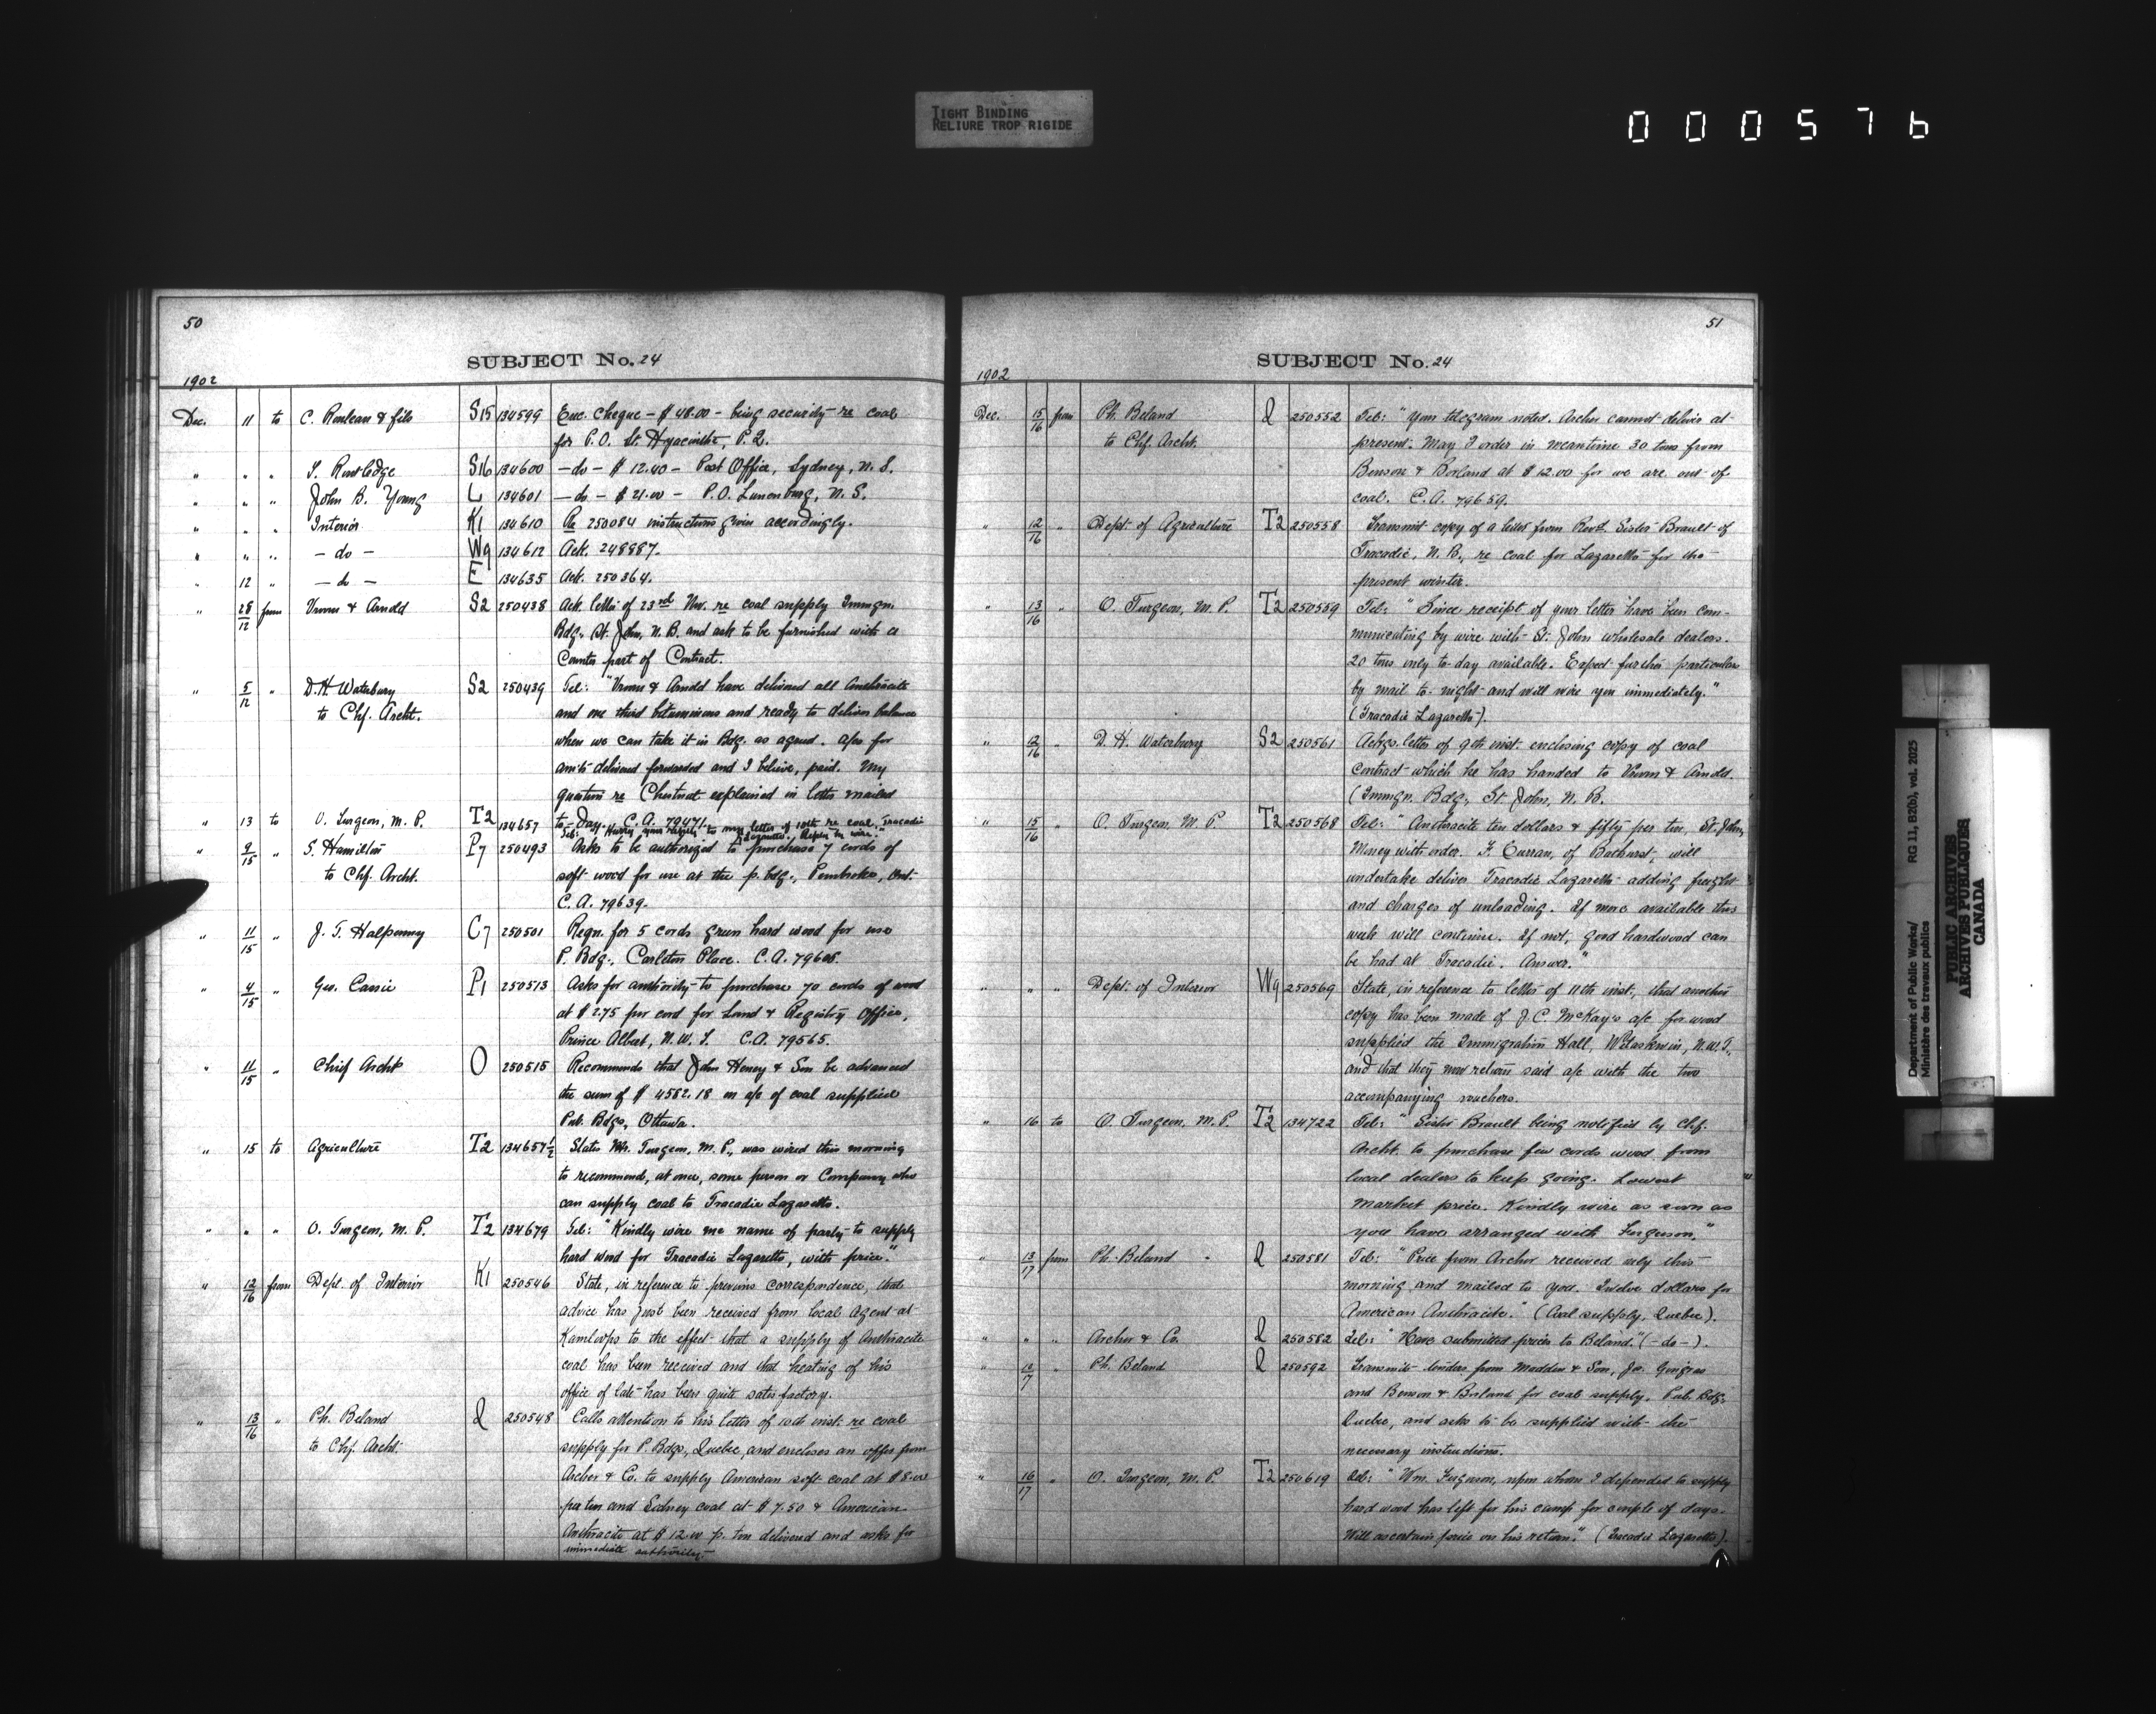 TIGHT BINDING
RELIURE TROP RIGIDE
000576
50
SUBJECT No. 24
1902
Dec. 11 to C. Rouleau & fils S15 134599 Enc. cheque – $48.00 – being security re coal
for P.O. St. Hyacinthe, P.Q.
" " " T. Routledge S16 134600 – do – $12.40 – Post Office, Sydney, N.S.
" " " John B. Young L 134601 – do – $21.00 – P.O. Lunenburg, N.S.
" " " Interior K1 134610 Re 250084 instructions given accordingly.
" " " – do – W9 134612 Ack. 248887.
" 12 " – do – E 134635 Ack. 250364.
" 28/12 from Vroom & Arnold S2 250438 Ack. letter of 23rd Nov. re coal supply Immgn.
Bdg., St. John, N.B. and ask to be furnished with a
Counter part of Contract.
" 5/12 " D.H. Waterbury S2 250439 Tel: "Vroom & Arnold have delivered all Anthracite
to Chf. Archt. and one third bituminous and ready to deliver balance
when we can take it in Bdg. as agreed. a/cs for
am'ts delivered forwarded and I believe, paid. My
question re Chestnut explained in letter mailed
to-Day. C.A. 79471.
" 13 to O. Turgeon, M.P. T2 134657 Tel: "Hurry your reply to my letter of 10th re coal, Tracadie
Lazaretto. Reply by wire."
" 9/15 " S. Hamilton P7 250493 Asks to be authorized to purchase 7 cords of
to Chf. Archt. soft wood for use at the p. bdg., Pembroke, Ont.
C.A. 79639.
" 11/15 " J. T. Halpenny C7 250501 Reqn. for 5 cords green hard wood for use
P. Bdg., Carleton Place. C.A. 79605.
" 4/15 " Geo. Cassie P1 250513 Asks for authority to purchase 70 cords of wood
at $2.75 per cord for Land & Registry Office,
Prince Albert, N.W.T. C.A. 79565.
" 11/15 " Chief Archt O 250515 Recommends that John Heney & Son be advanced
the sum of $4582.18 on a/c of coal supplied
Pub. Bdgs, Ottawa.
" 15 to Agriculture T2 134657½ States Mr. Turgeon, M.P., was wired this morning
to recommend, at once, some person or Company who
can supply coal to Tracadie Lazaretto.
" " " O. Turgeon, M.P. T2 134679 Tel: "Kindly wire me name of party to supply
hard wood for Tracadie Lazaretto, with price."
" 12/16 from Dept. of Interior K1 250546 State, in reference to previous correspondence, that
advice has just been received from local agent at
Kamloops to the effect that a supply of Anthracite
coal has been received and that heating of his
office of late has been quite satisfactory.
" 13/16 " Ph. Beland Q 250548 Calls attention to his letter of 10th inst. re coal
to Chf. Archt. supply for P. Bdgs, Quebec, and encloses an offer from
Archer & Co. to supply American soft coal at $8.00
per ton and Sydney coal at $7.50 & American
Anthracite at $12.00 p. ton delivered and asks for
immediate authority.
51
SUBJECT No. 24
1902
Dec. 15/16 from Ph. Beland Q 250552 Tel: "Your telegram noted. Archer cannot deliver at
to Chf. Archt. present. May I order in meantime 30 tons from
Benson & Borland at $12.00 for we are out of
coal. C.A. 79659.
" 12/16 " Dept. of Agriculture T2 250558 Transmit copy of a letter from Revd. Sister Brault of
Tracadie, N.B., re coal for Lazaretto for the
present winter.
" 13/16 " O. Turgeon, M.P. T2 250559 Tel: "Since receipt of your letter have been com-
municating by wire with St. John wholesale dealers.
20 tons only to-day available. Expect further particulars
by mail to-night and will wire you immediately."
(Tracadie Lazaretto).
" 12/16 " D. H. Waterbury S2 250561 Ackgs. letter of 9th inst. enclosing copy of coal
contract which he has handed to Vroom & Arnold
(Immgn. Bdg., St. John, N.B.
" 15/16 " O. Turgeon, M.P. T2 250568 Tel: "Anthracite ten dollars & fifty per ton, St. John,
Money with order. F. Curran, of Bathurst, will
undertake deliver Tracadie Lazaretto adding freight
and charges of unloading. If more available this
week will continue. If not, good hardwood can
be had at Tracadie. Answer."
" " " Dept. of Interior W9 250569 State, in reference to letter of 11th inst., that another
copy has been made of J.C. McKay's a/c for wood
supplied the Immigration Hall, Wetaskiwin, N.W.T.,
and that they now return said a/c with the two
accompanying vouchers.
" 16 to O. Turgeon, M.P. T2 134722 Tel: "Sister Brault being notified by Chf.
Archt. to purchase few cords wood from
local dealers to keep going. Lowest
market price. Kindly wire as soon as
you have arranged with Ferguson."
" 13/17 from Ph. Beland Q 250581 Tel: "Price from Archer received only this
morning and mailed to you. Twelve dollars for
American Anthracite." (Coal supply, Quebec).
" " " Archer & Co. Q 250582 Tel: "Have submitted prices to Beland." (– do –).
" 12/17 " Ph. Beland Q 250592 Transmits tenders from Madden & Son, Jos. Gingras
and Benson & Borland for coal supply. Pub. Bdgs.
Quebec, and asks to be supplied with the
necessary instructions.
" 16/17 " O. Turgeon, M.P. T2 250619 Tel: "Wm. Ferguson, upon whom I depended to supply
hard wood has left for his camp for couple of days.
Will ascertain price on his return." (Tracadie Lazaretto).
Department of Public Works/
Ministère des travaux publics
RG 11, B2(b), vol. 2025
PUBLIC ARCHIVES
ARCHIVES PUBLIQUES
CANADA